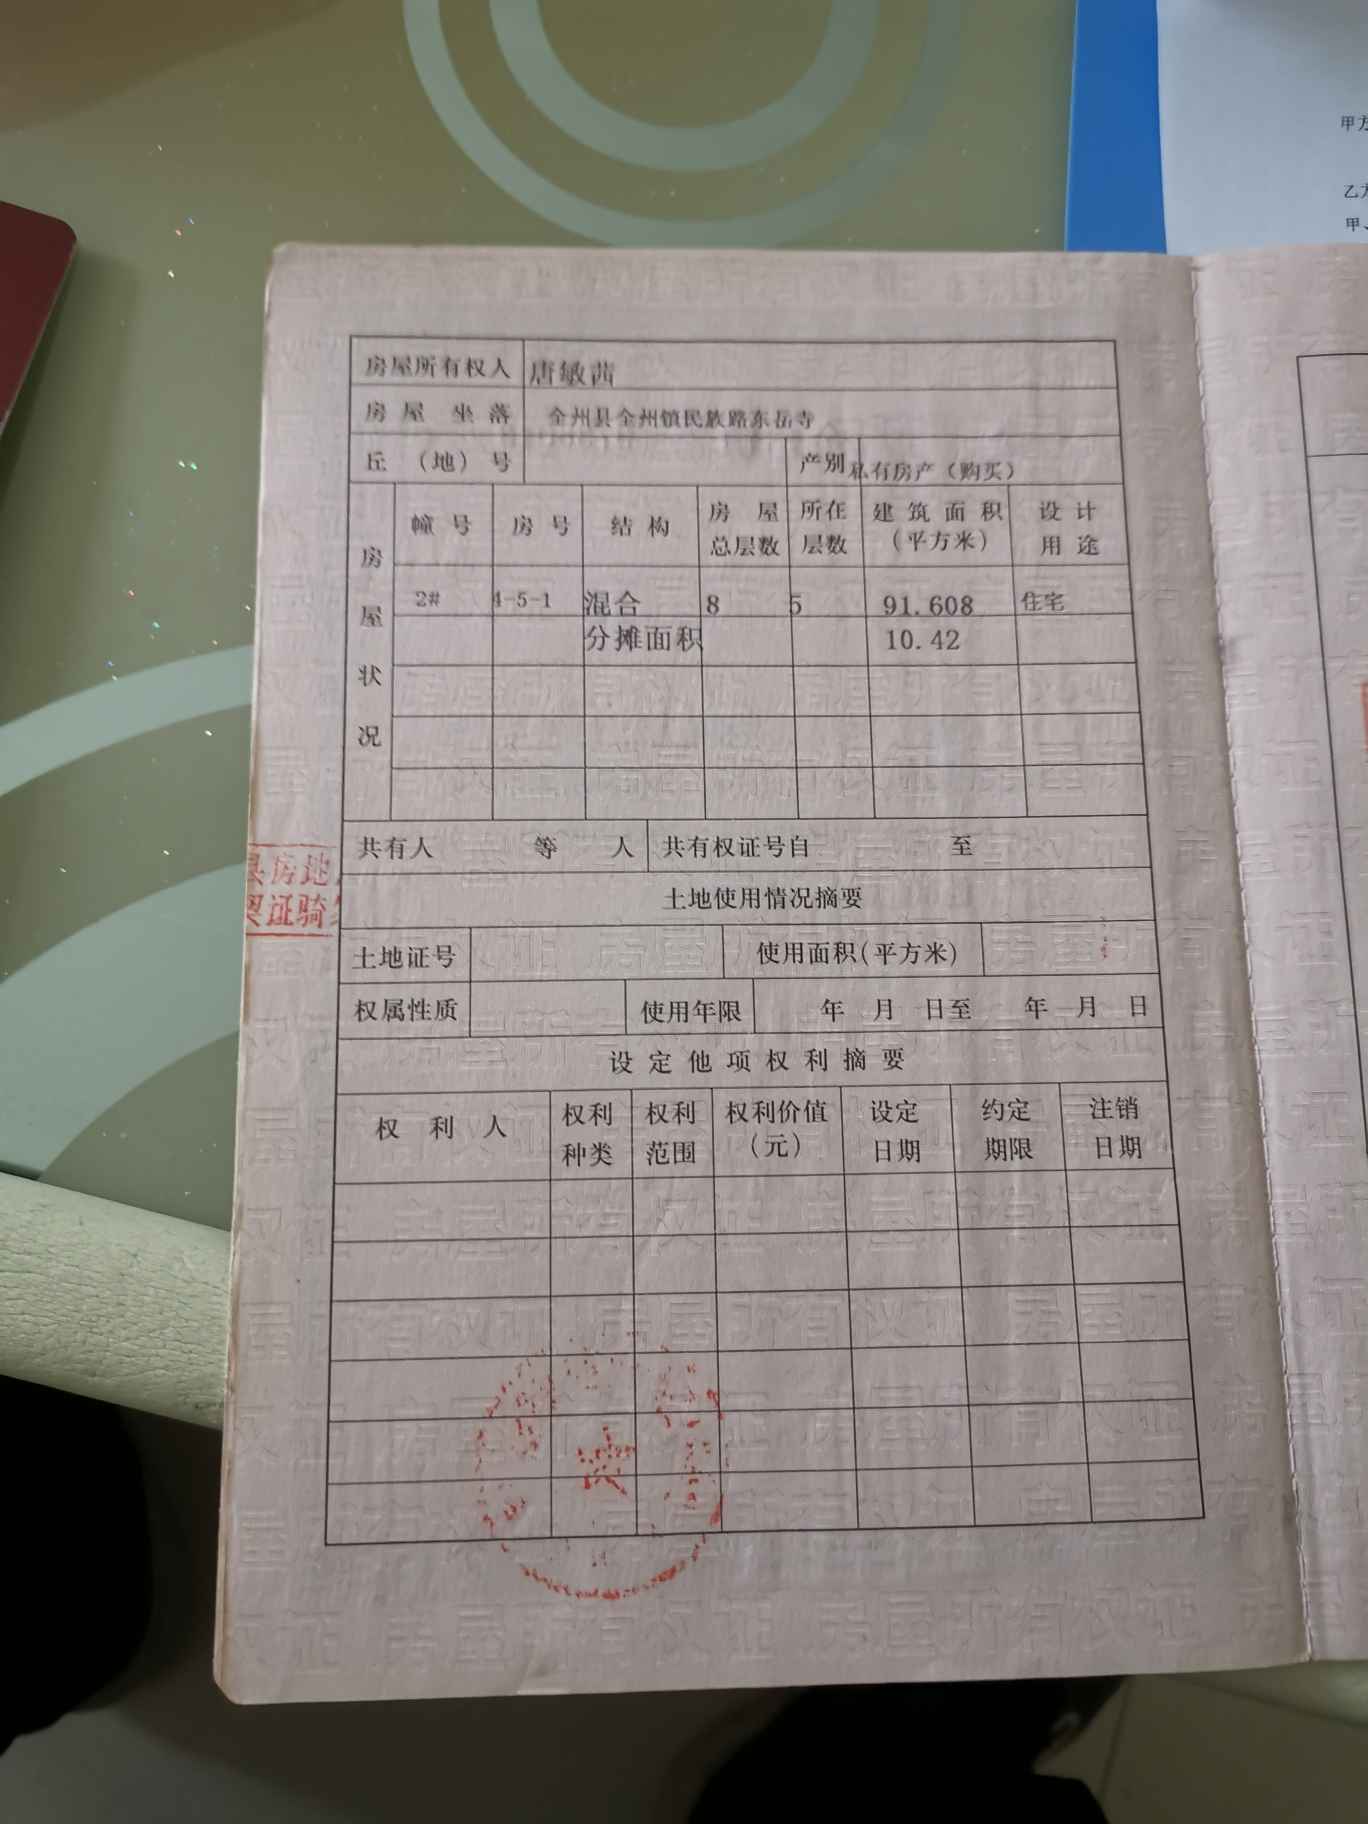 甲方
乙方
甲、
房屋所有权人 唐敏茜
房屋坐落 全州县全州镇民族路东岳寺
丘（地）号 产别 私有房产（购买）
房屋状况
幢号 房号 结构 房屋总层数 所在层数 建筑面积（平方米） 设计用途
2# 4-5-1 混合 8 5 91.608 住宅
分摊面积 10.42
共有人 等 人 共有权证号自 至
县房地
契证骑
土地使用情况摘要
土地证号 使用面积(平方米)
权属性质 使用年限 年 月 日至 年 月 日
设定他项权利摘要
权利人 权利种类 权利范围 权利价值（元） 设定日期 约定期限 注销日期